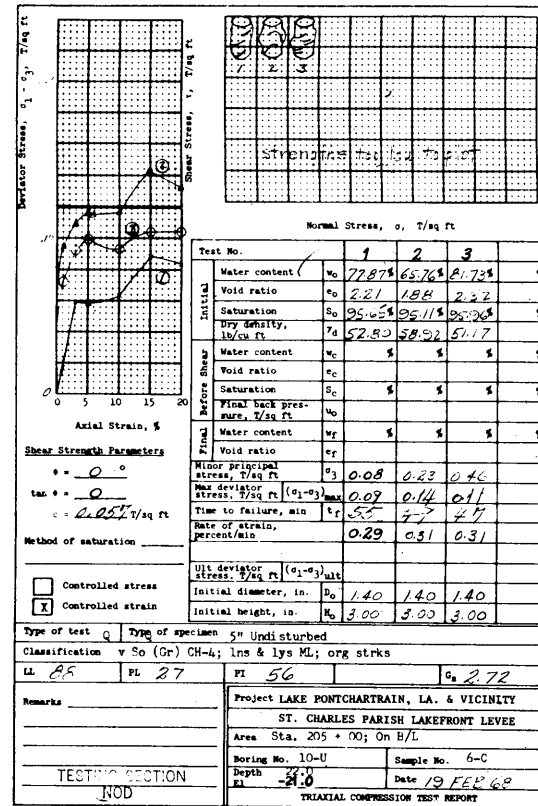 Deviator Stress, σ1 - σ3, T/sq ft
Shear Stress, τ, T/sq ft
1 2 3
strengths too low to plot
Normal Stress, σ, T/sq ft
0 5 10 15 20
Axial Strain, %
Shear Strength Parameters
φ = 0 °
tan φ = 0
c = 0.057 T/sq ft
Method of saturation
Controlled stress
X Controlled strain
Test No. 1 2 3
Initial
Water content w₀ 77.87% 65.76% 81.73% %
Void ratio e₀ 2.21 1.88 2.32
Saturation S₀ 95.65% 95.11% 95.96% %
Dry density, lb/cu ft γd 52.80 58.92 51.17
Before Shear
Water content wc % % % %
Void ratio ec
Saturation Sc % % % %
Final back pressure, T/sq ft u₀
Final
Water content wf % % % %
Void ratio ef
Minor principal stress, T/sq ft σ3 0.08 0.23 0.46
Max deviator stress, T/sq ft (σ1-σ3)max 0.09 0.14 0.11
Time to failure, min tf 55 47 47
Rate of strain, percent/min 0.29 0.31 0.31
Ult deviator stress, T/sq ft (σ1-σ3)ult
Initial diameter, in. D₀ 1.40 1.40 1.40
Initial height, in. H₀ 3.00 3.00 3.00
Type of test Q Type of specimen 5" Undisturbed
Classification v So (Gr) CH-4; lns & lys ML; org strks
LL 88 PL 27 PI 56 Gs 2.72
Remarks
TESTING SECTION
NOD
Project LAKE PONTCHARTRAIN, LA. & VICINITY
ST. CHARLES PARISH LAKEFRONT LEVEE
Area Sta. 205 + 00; On B/L
Boring No. 10-U Sample No. 6-C
Depth 22.0
El -21.0 Date 19 FEB 68
TRIAXIAL COMPRESSION TEST REPORT